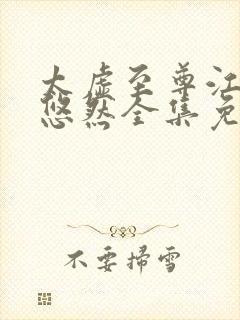 太虚至尊江
悠然全集免
不要掃雪